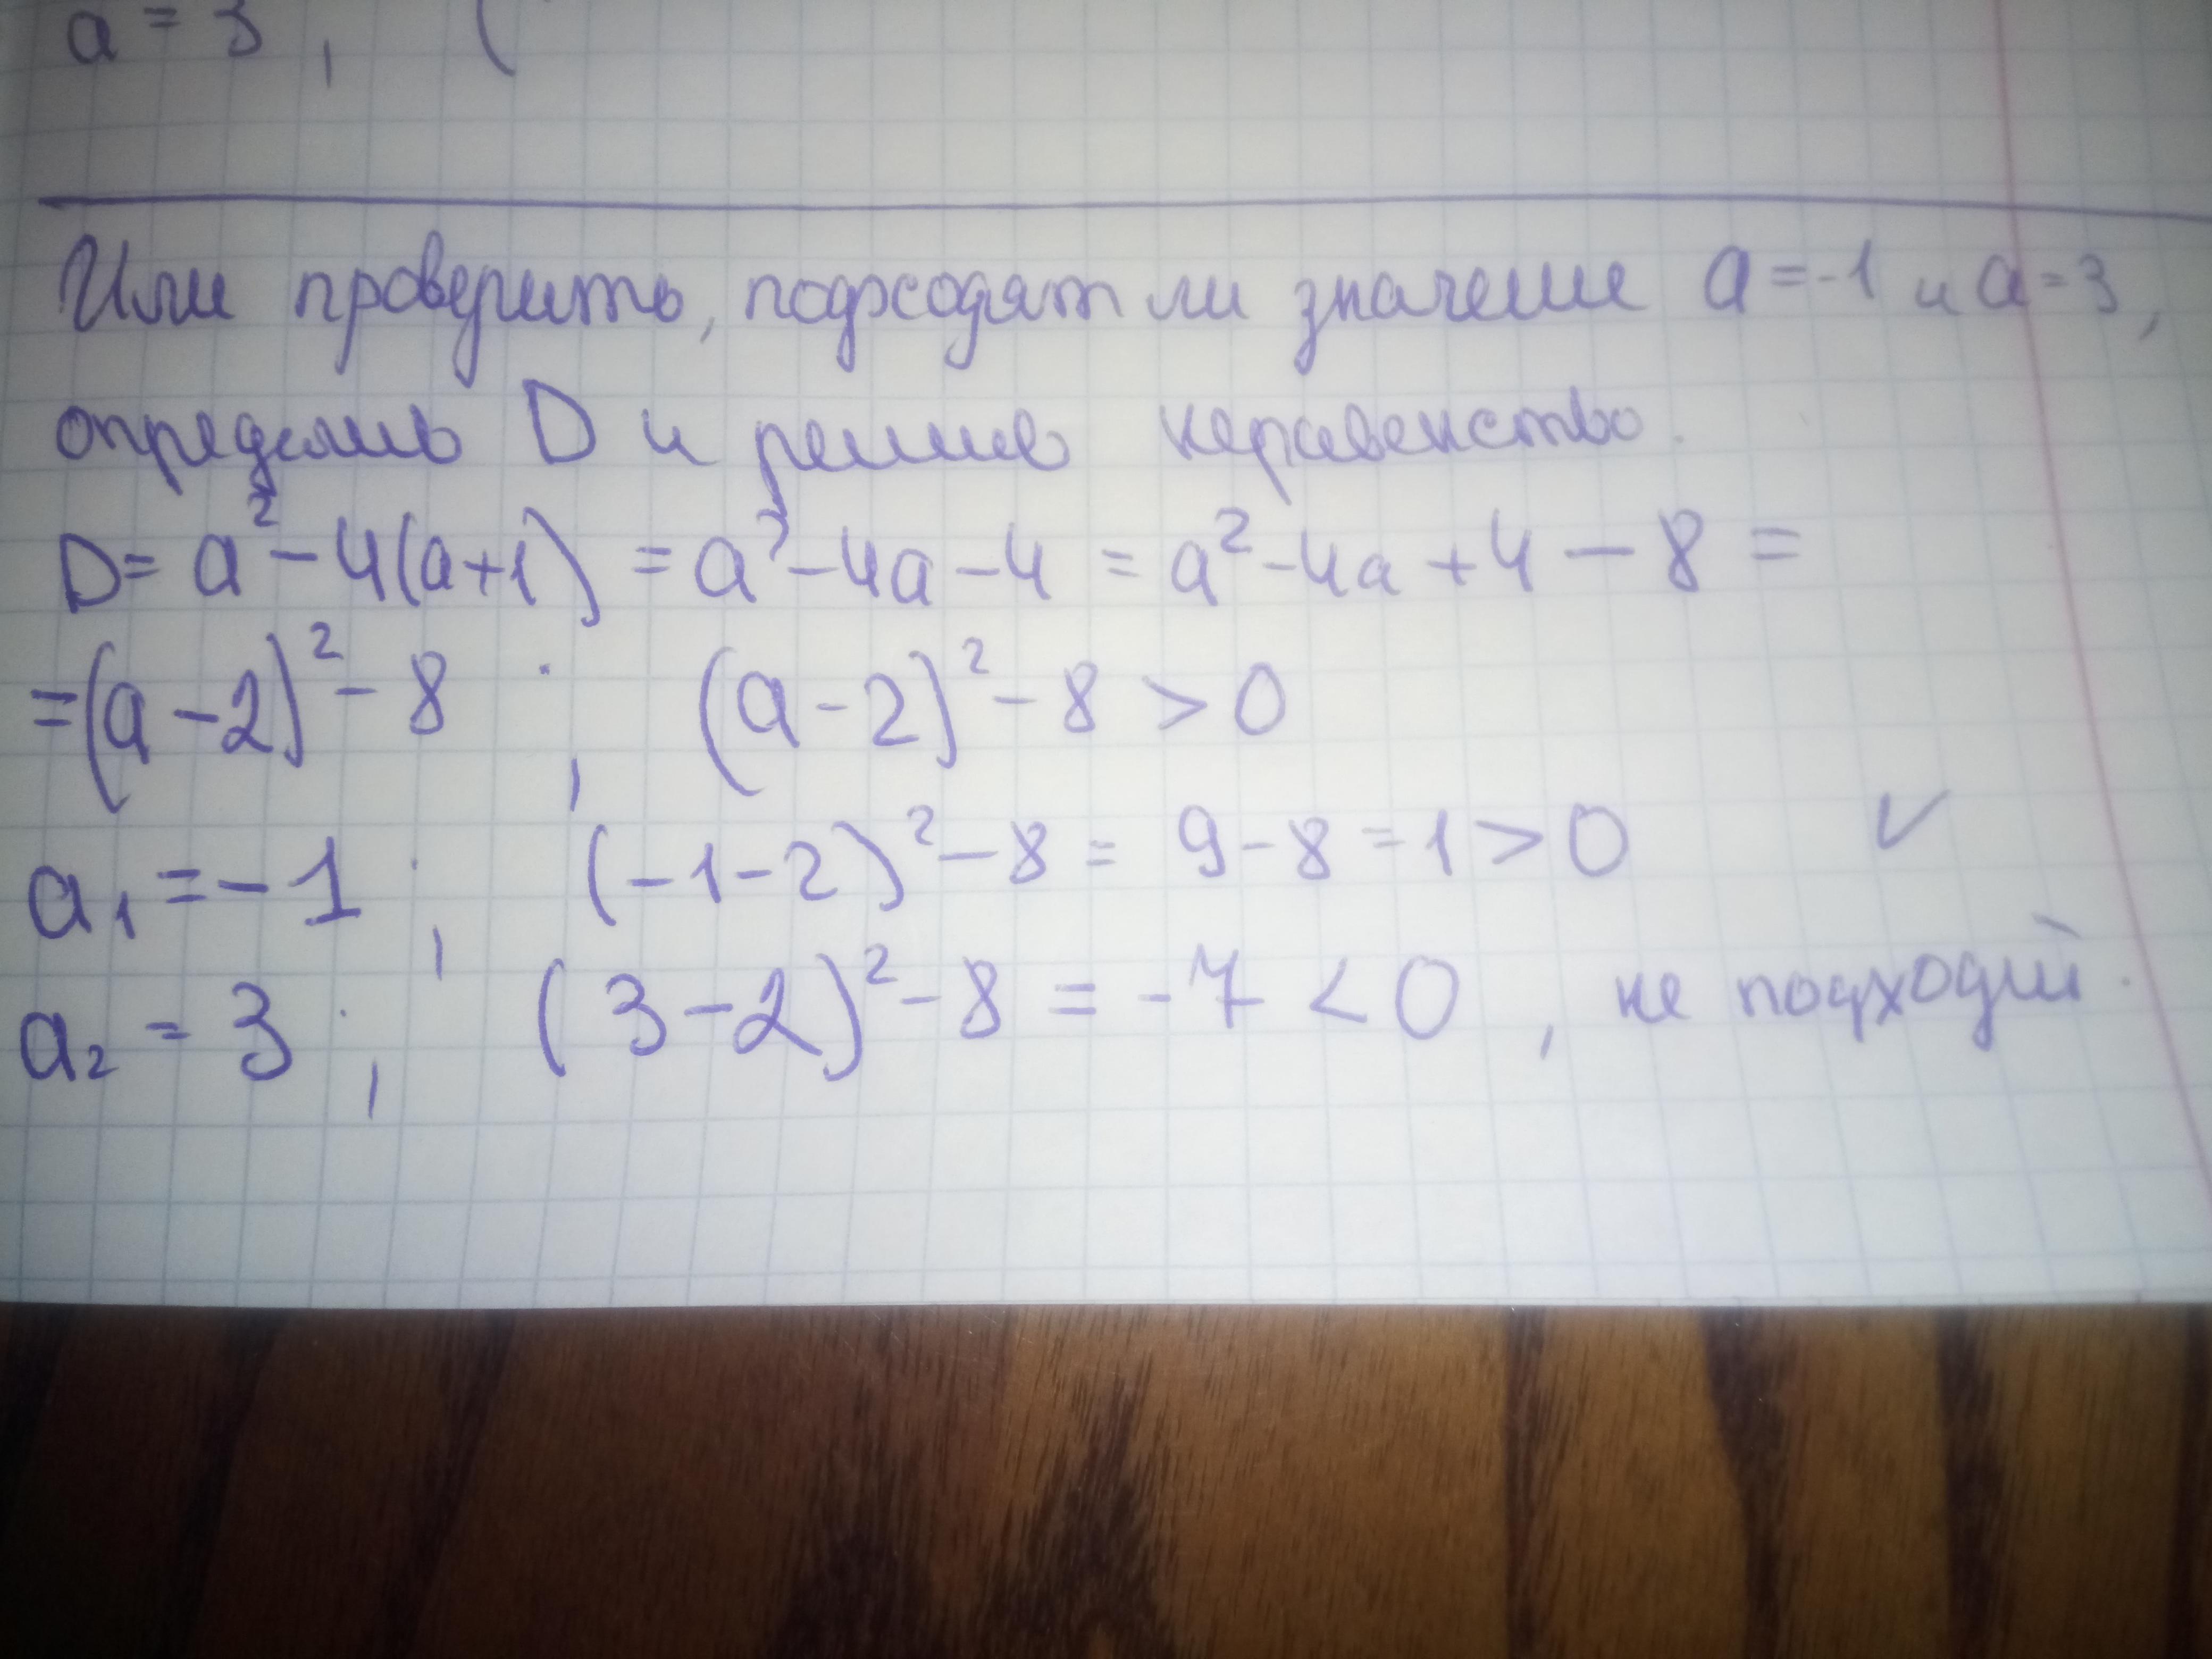 a = 3, (
Или проверить, подходят ли значение a = -1 и a = 3,
определив D и решив неравенство.
D = a² - 4(a+1) = a² - 4a - 4 = a² - 4a + 4 - 8 =
= (a - 2)² - 8 ; (a - 2)² - 8 > 0
a₁ = -1 ; (-1-2)² - 8 = 9 - 8 = 1 > 0 ✓
a₂ = 3 ; (3 - 2)² - 8 = -7 < 0 , не подходит.